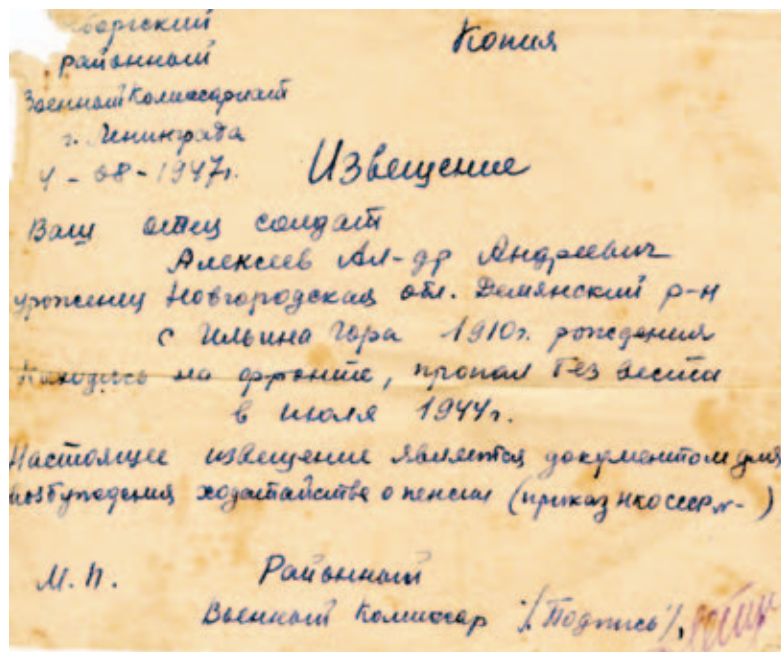 Копия
районный
Военный Комиссариат
г. Ленинграда
4-08-1947г.
Извещение
Ваш отец солдат
Алексеев Ал-др Андреевич
уроженец Новгородская обл. Демянский р-н
с Ильина Гора 1910г. рождения
Находясь на фронте, пропал без вести
в июля 1944г.
Настоящее извещение является документом для
возбуждения ходатайства о пенсии (приказ НКО СССР №- )
М.П. Районный
Военный Комиссар /Подпись/